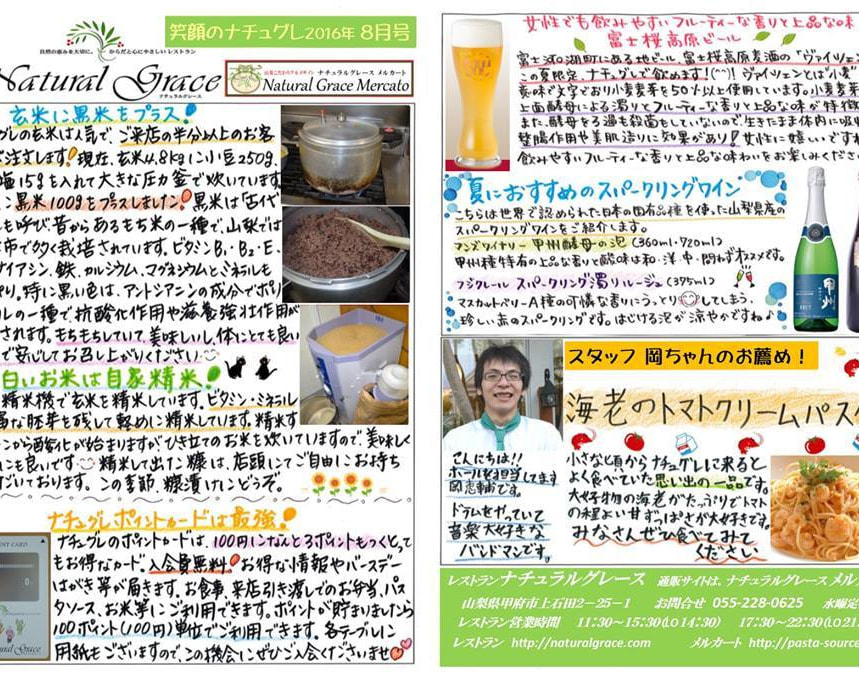 自然の恵みを大切に。からだと心にやさしいレストラン
Natural Grace
ナチュラルグレース
笑顔のナチュグレ2016年 8月号
ナチュラルグレース メルカート
Natural Grace Mercato
玄米に黒米をプラス!
グレの玄米は人気で、ご来店の半分以上のお客
ご注文します!現在、玄米4.8kgに小豆250g、
塩15gを入れて大きな圧力釜で炊いています。
に黒米100gをプラスしました!黒米は「古代
も呼び、昔からあるもち米の一種で、山梨では
市で多く栽培されています。ビタミンB1・B2・E、
ナイアシン、鉄、カルシウム、マグネシウムとミネラルも
り。特に黒い色は、アントシアニンの成分でポリ
ルの一種で抗酸化作用や滋養強壮作用が
されます。もちもちしていて、美味しいし、体にとても良い
で安心してお召し上がりください
白いお米は自家精米!
精米機で玄米を精米しています。ビタミン・ミネラル
富な胚芽を残して軽めに精米しています。精米す
ンから酸化が始まりますがひき立てのお米を炊いていますので、美味しく
にも良いです 精米して出た糠は、店頭にてご自由にお持ち
っております。この季節、糠漬けにどうぞ。
ナチュグレポイントカードは最強!
ナチュグレのポイントカードは、100円につなんと3ポイントもつくとって
もお得なカード。入会費無料!お得な情報やバースデー
はがき等が届きます。お食事、来店引き渡しでのお弁当、パス
タソース、お米等にご利用できます。ポイントが貯まりましたら
100ポイント(100円)単位でご利用できます。各テーブルに
用紙もございますので、この機会にぜひご入会くださいませ
女性でも飲みやすいフルーティーな香りと上品な味
富士桜高原ビール
富士河口湖町にある地ビール、富士桜高原麦酒の「ヴァイツェン
この夏限定、ナチュグレで飲めます!(^^)! ヴァイツェンとは"小麦"
意味で文字どおり小麦麦芽を50%以上使用しています。小麦麦芽
上面酵母による濁りとフルーティーな香りと上品な味が特徴
また、酵母をろ過も殺菌をしていないので、生きたまま体内に吸収
整腸作用や美肌造りに効果があり!女性に嬉しいですね
飲みやすいフルーティーな香りと上品な味わいをお楽しみください
夏におすすめのスパークリングワイン
こちらは世界で認められた日本の固有品種を使った山梨県産の
スパークリングワインをご紹介します。
マンズワイナリー 甲州酵母の泡 (360ml・720ml)
甲州種特有の上品な香りと酸味は和・洋・中・問わずオススメです。
フジクレール スパークリング濁りルージュ (375ml)
マスカットベリーA種の可憐な香りにうっとりしてしまう、
珍しい赤のスパークリングです。はじける泡が涼やかですね♪
甲州
スタッフ 岡ちゃんのお薦め!
海老のトマトクリームパス
こんにちは!!
ホールを担当してます
岡志輔です。
ドラムをやっていて
音楽大好きな
バンドマンです。
小さな頃からナチュグレに来ると
よく食べていた思い出の一品です。
大好物の海老がたっぷりでトマト
の程よい甘ずっぱさが大好きです。
みなさんぜひ食べてみて
ください
レストラン ナチュラルグレース 通販サイトは、ナチュラルグレース メル
山梨県甲府市上石田2-25-1 お問合せ 055-228-0625 水曜定
レストラン営業時間 11:30~15:30(Lo14:30) 17:30~22:30(Lo21
レストラン http://naturalgrace.com メルカート http://pasta-source